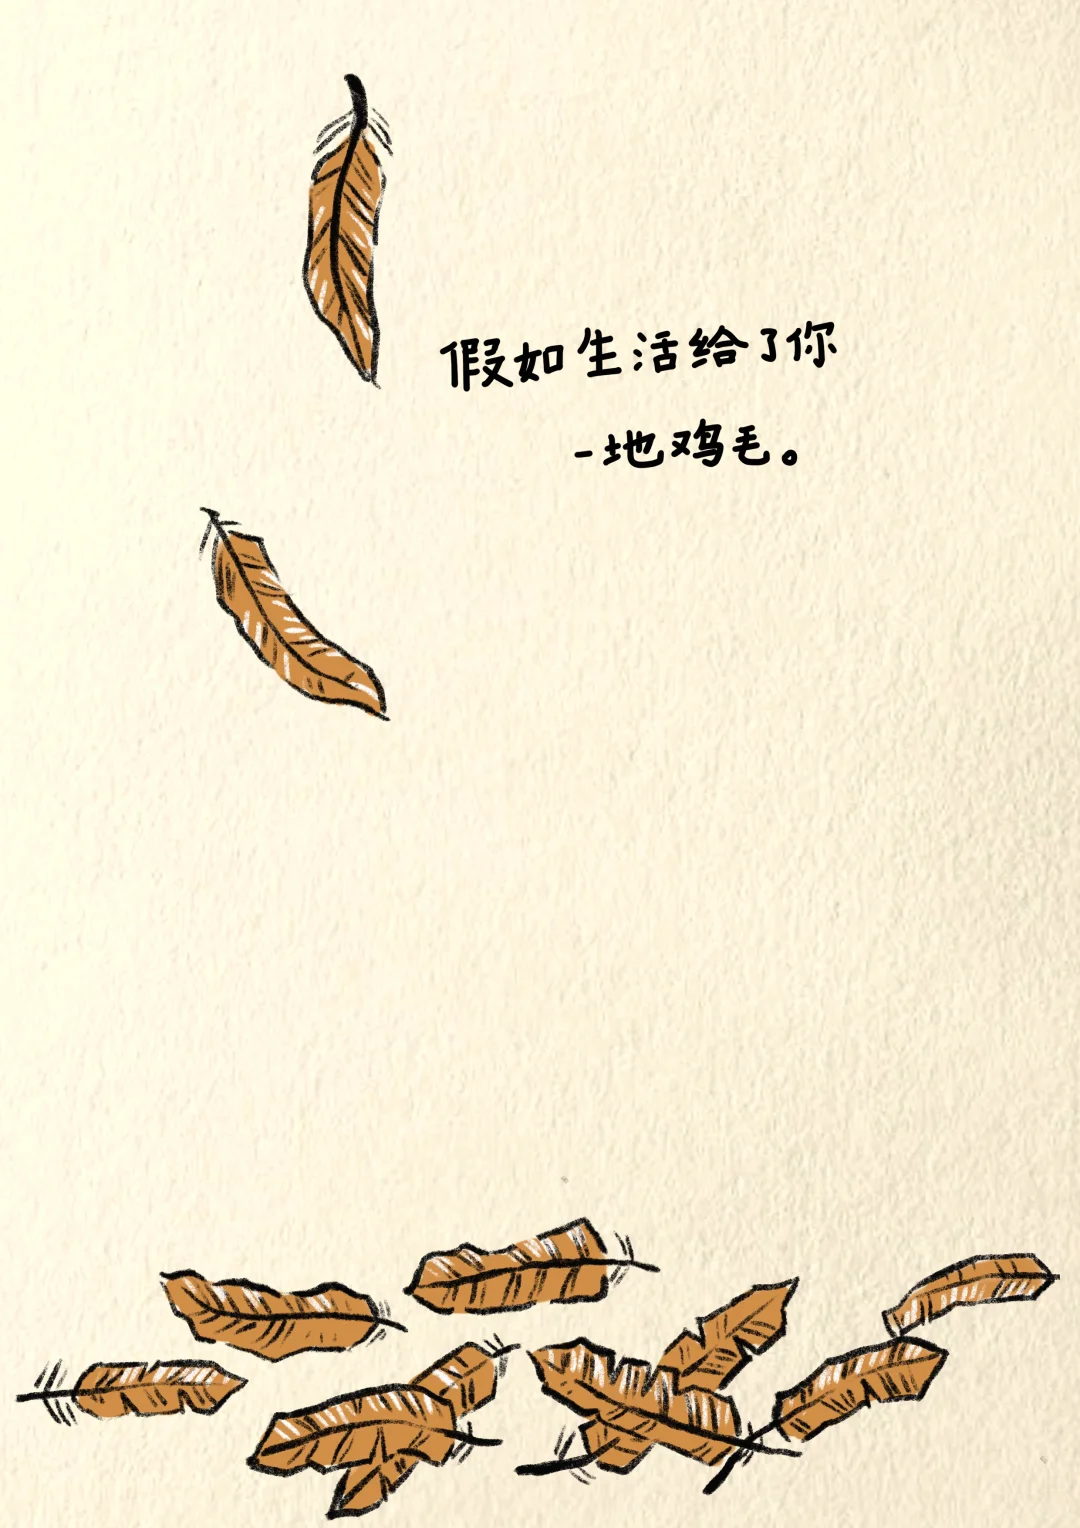 假如生活给了你
一地鸡毛。